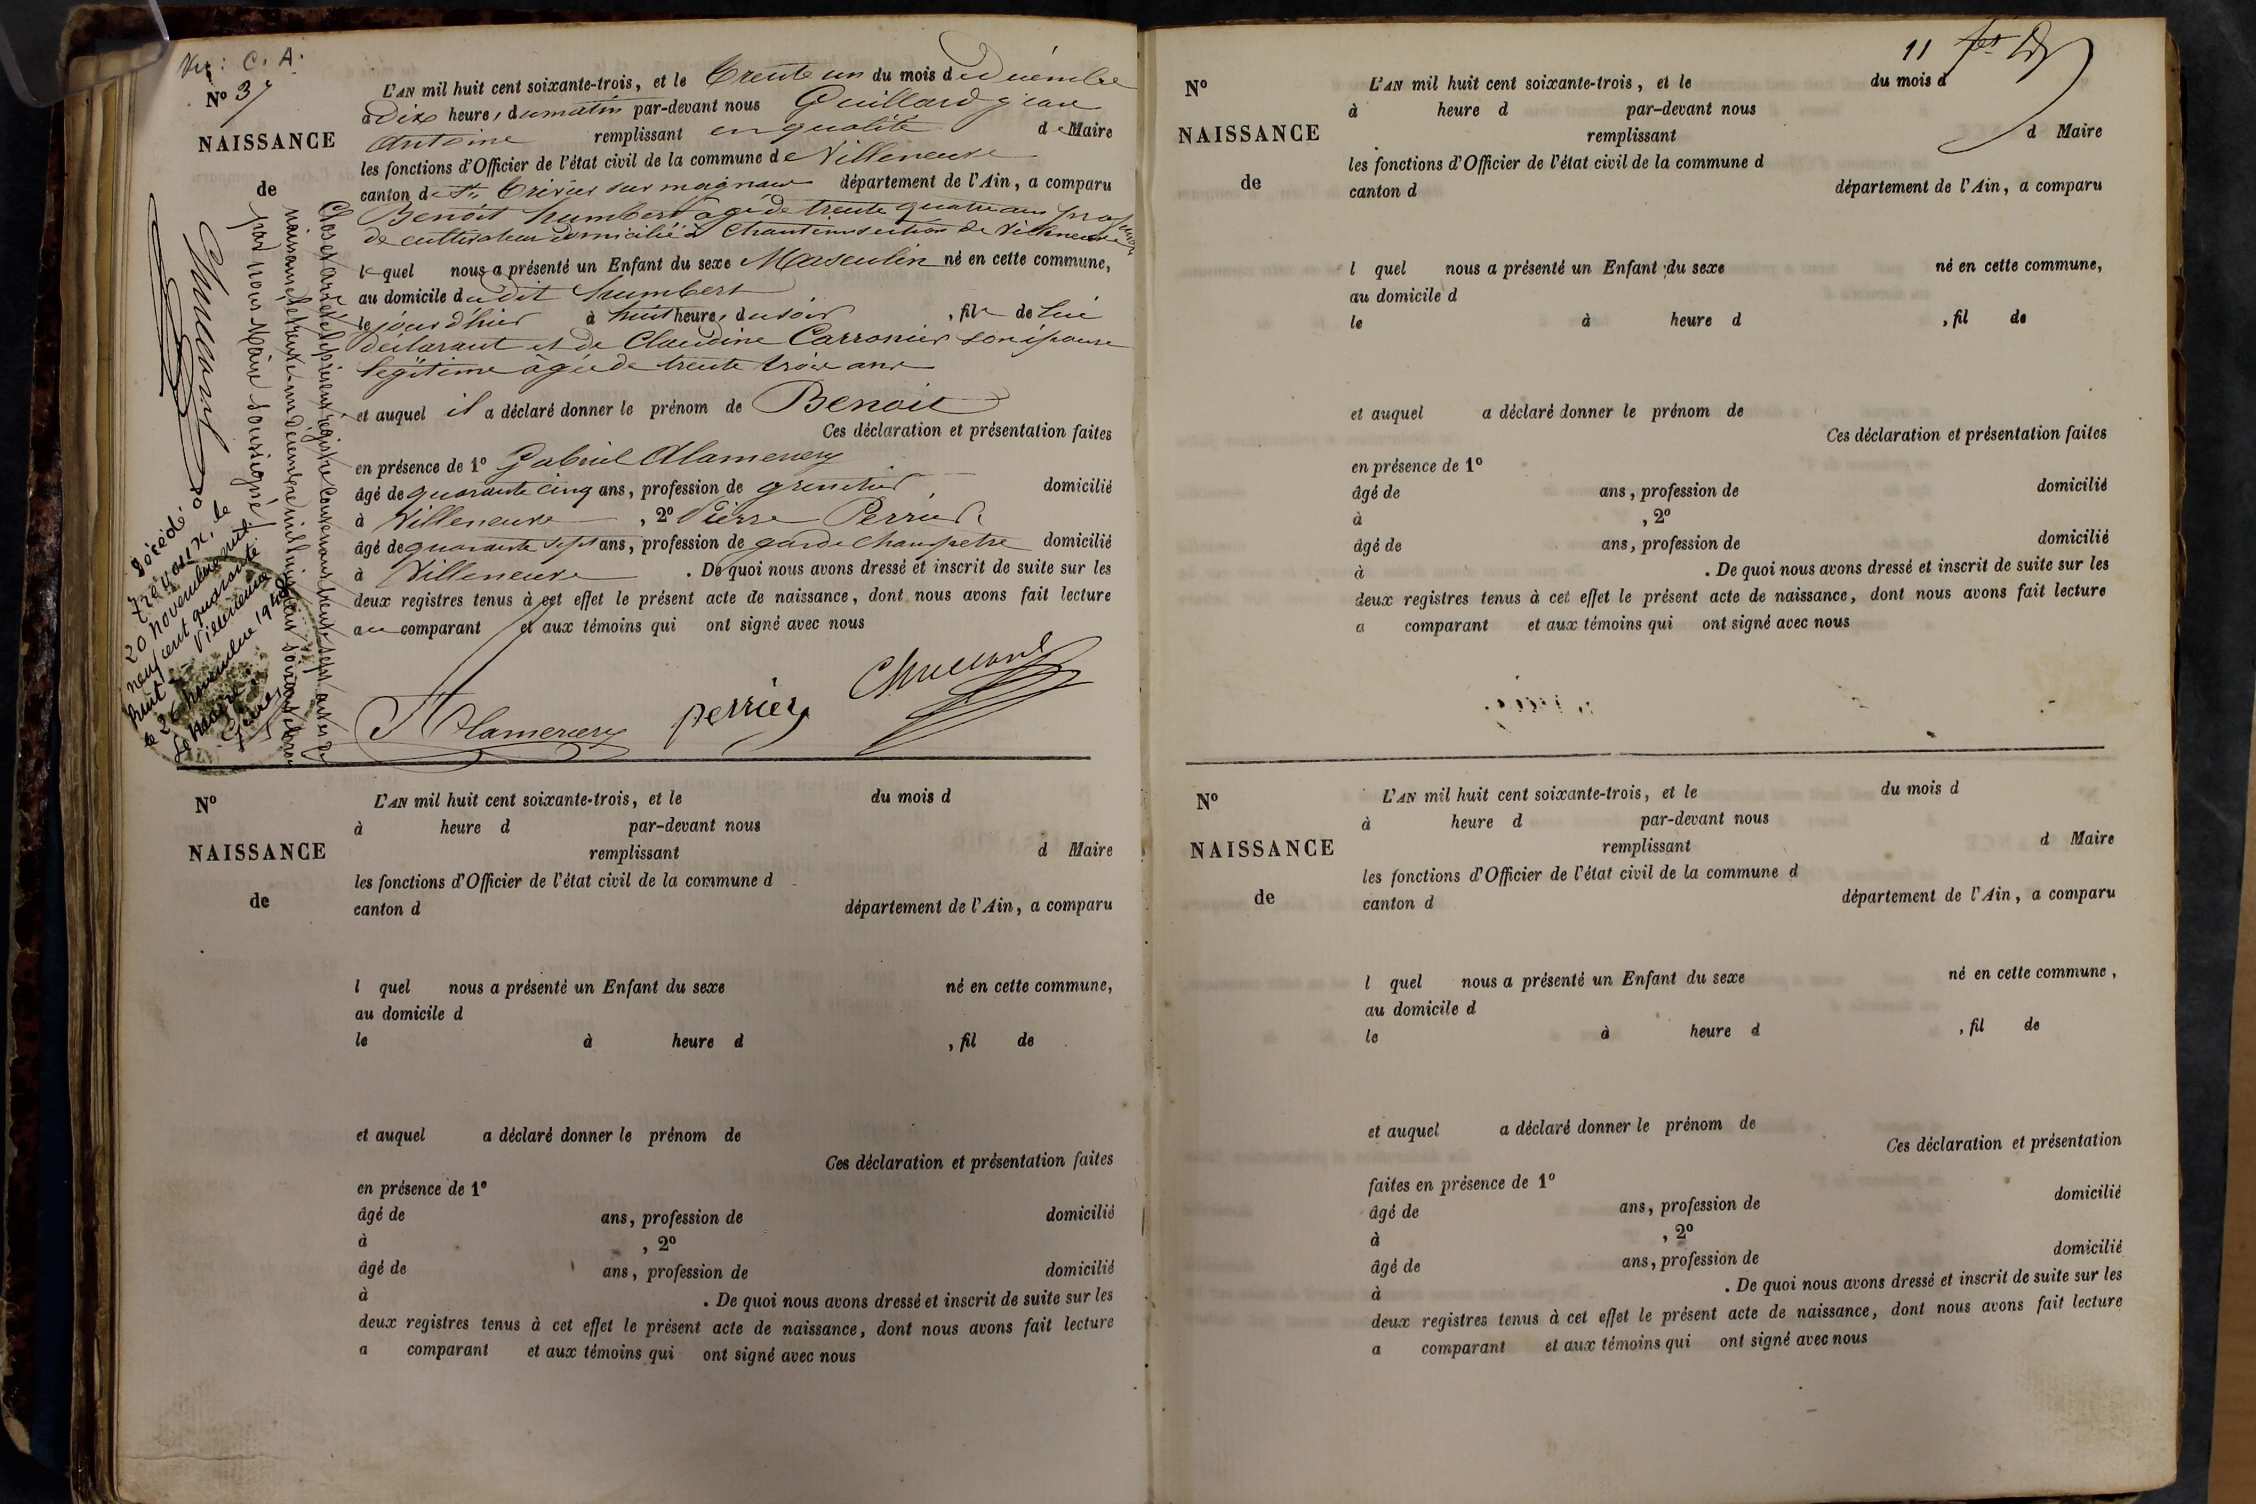 Vu : C. A.
Nº 37
NAISSANCE
de
L'AN mil huit cent soixante-trois, et le Trente un du mois de décembre
à dix heure, du matin par-devant nous jean
Antoine remplissant en qualité de Maire
les fonctions d'Officier de l'état civil de la commune de Villeneuve
canton de St Trivier sur moignans département de l'Ain, a comparu
Benoit humbert âgé de trente quatre ans profession
de cultivateur domicilié à section de Villeneuve
lequel nous a présenté un Enfant du sexe Masculin né en cette commune,
au domicile du dit humbert
le jour d'hier à huit heure, du soir, fils de lui
déclarant et de Claudine Carronier son épouse
légitime âgée de trente trois ans
et auquel il a déclaré donner le prénom de Benoit
Ces déclaration et présentation faites
en présence de 1º Gabriel Alamercery
âgé de quarante cinq ans, profession de domicilié
à Villeneuve, 2º Pierre Perrier
âgé de quarante sept ans, profession de garde champetre domicilié
à Villeneuve. De quoi nous avons dressé et inscrit de suite sur les
deux registres tenus à cet effet le présent acte de naissance, dont nous avons fait lecture
au comparant et aux témoins qui ont signé avec nous
Alamercery perrier
Clos et arrêté le présent registre contenant trente sept actes de
naissance le trente-un décembre mil huit cent soixante trois
par nous Maire soussigné
Décédé à
Trévoux, le
20 novembre mil
neuf cent quarante
huit - Villeneuve
le 26 novembre 1948
Le Maire :
Nº
NAISSANCE
de
L'AN mil huit cent soixante-trois, et le du mois d
à heure d par-devant nous
remplissant d Maire
les fonctions d'Officier de l'état civil de la commune d
canton d département de l'Ain, a comparu
l quel nous a présenté un Enfant du sexe né en cette commune,
au domicile d
le à heure d , fil de
et auquel a déclaré donner le prénom de
Ces déclaration et présentation faites
en présence de 1º
âgé de ans, profession de domicilié
à , 2º
âgé de ans, profession de domicilié
à . De quoi nous avons dressé et inscrit de suite sur les
deux registres tenus à cet effet le présent acte de naissance, dont nous avons fait lecture
a comparant et aux témoins qui ont signé avec nous
11
Nº
NAISSANCE
de
L'AN mil huit cent soixante-trois, et le du mois d
à heure d par-devant nous
remplissant d Maire
les fonctions d'Officier de l'état civil de la commune d
canton d département de l'Ain, a comparu
l quel nous a présenté un Enfant du sexe né en cette commune,
au domicile d
le à heure d , fil de
et auquel a déclaré donner le prénom de
Ces déclaration et présentation faites
en présence de 1º
âgé de ans, profession de domicilié
à , 2º
âgé de ans, profession de domicilié
à . De quoi nous avons dressé et inscrit de suite sur les
deux registres tenus à cet effet le présent acte de naissance, dont nous avons fait lecture
a comparant et aux témoins qui ont signé avec nous
Nº
NAISSANCE
de
L'AN mil huit cent soixante-trois, et le du mois d
à heure d par-devant nous
remplissant d Maire
les fonctions d'Officier de l'état civil de la commune d
canton d département de l'Ain, a comparu
l quel nous a présenté un Enfant du sexe né en cette commune,
au domicile d
le à heure d , fil de
et auquel a déclaré donner le prénom de
Ces déclaration et présentation
faites en présence de 1º
âgé de ans, profession de domicilié
à , 2º
âgé de ans, profession de domicilié
à . De quoi nous avons dressé et inscrit de suite sur les
deux registres tenus à cet effet le présent acte de naissance, dont nous avons fait lecture
a comparant et aux témoins qui ont signé avec nous